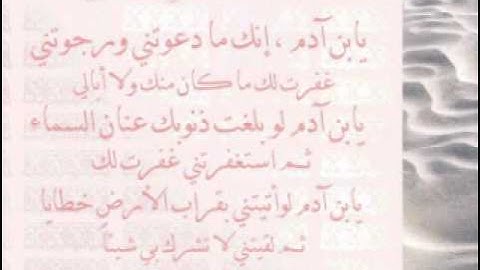 يابن آدم ، إنك ما دعوتني ورجوتني
غفرت لك ما كان منك ولا أبالي
يابن آدم لو بلغت ذنوبك عنان السماء
ثم استغفرتني غفرت لك
يابن آدم لو أتيتني بقراب الأرض خطايا
ثم لقيتني لا تشرك بي شيئاً